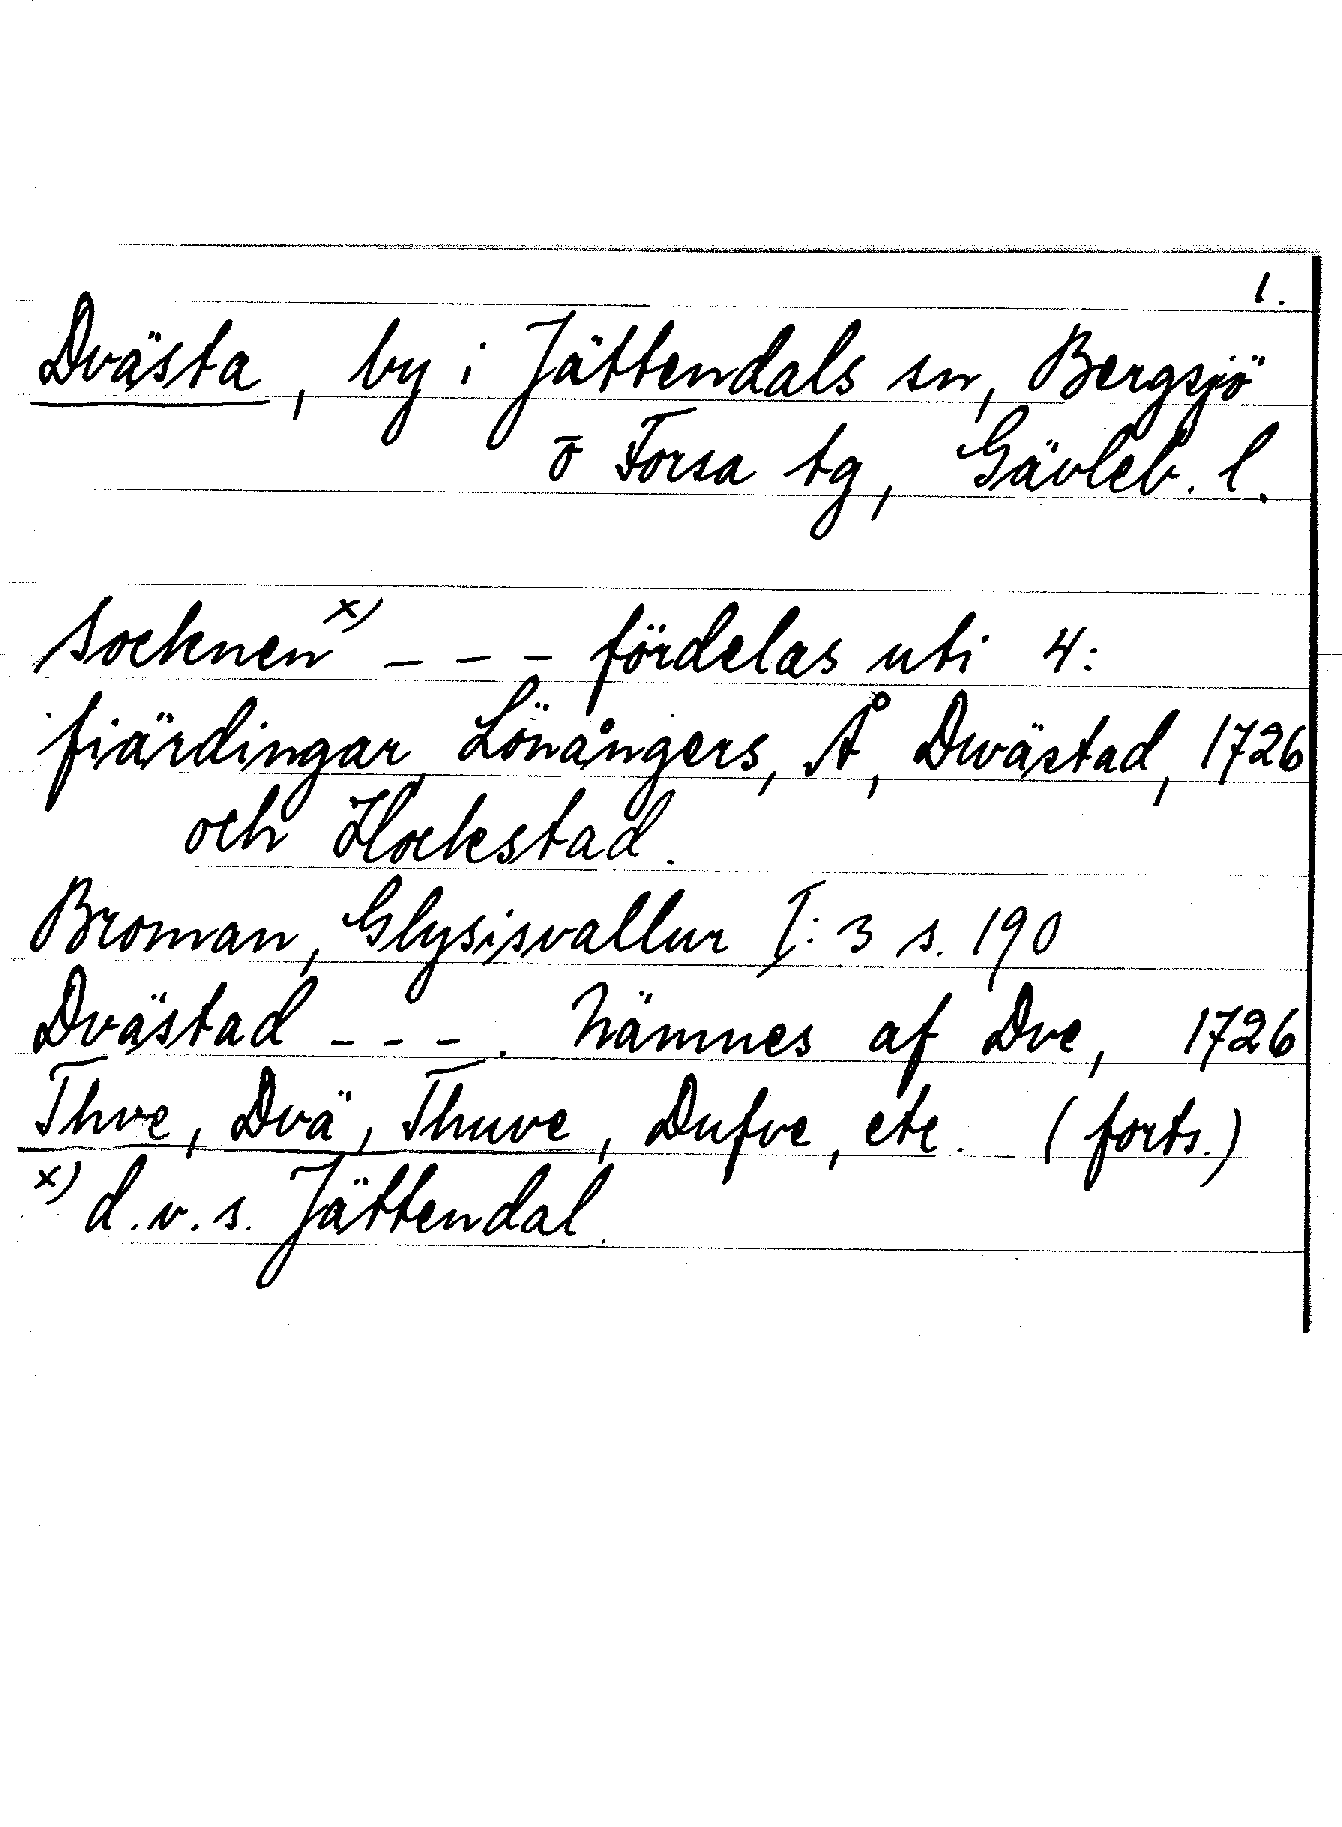 1.
Dvästa, by i Jättendals sn, Bergsjö
o Forsa tg, Gävleb. l.
Socknen x) - - - fördelas uti 4:
fiärdingar Lönångers, Å, Dwästad, 1726
och Hockstad.
Broman, Glysisvallur I:3 s. 190
Dvästad - - -. Nämnes af Dve, 1726
Thve, Dvä, Thuve, Dufve, etc. (forts.)
x) d.v.s. Jättendal.